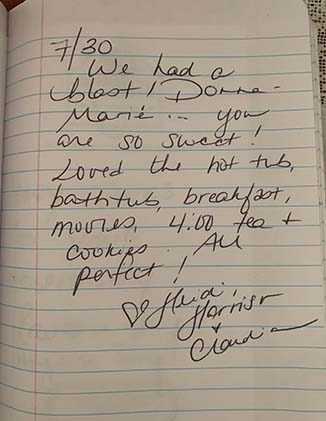 7/30
We had a
blast! Donna-
Marie... you
are so sweet!
Loved the hot tub,
bathtub, breakfast,
movies, 4:00 tea +
cookies. All
perfect!
♡ Heidi,
Harrison
+
Claudia